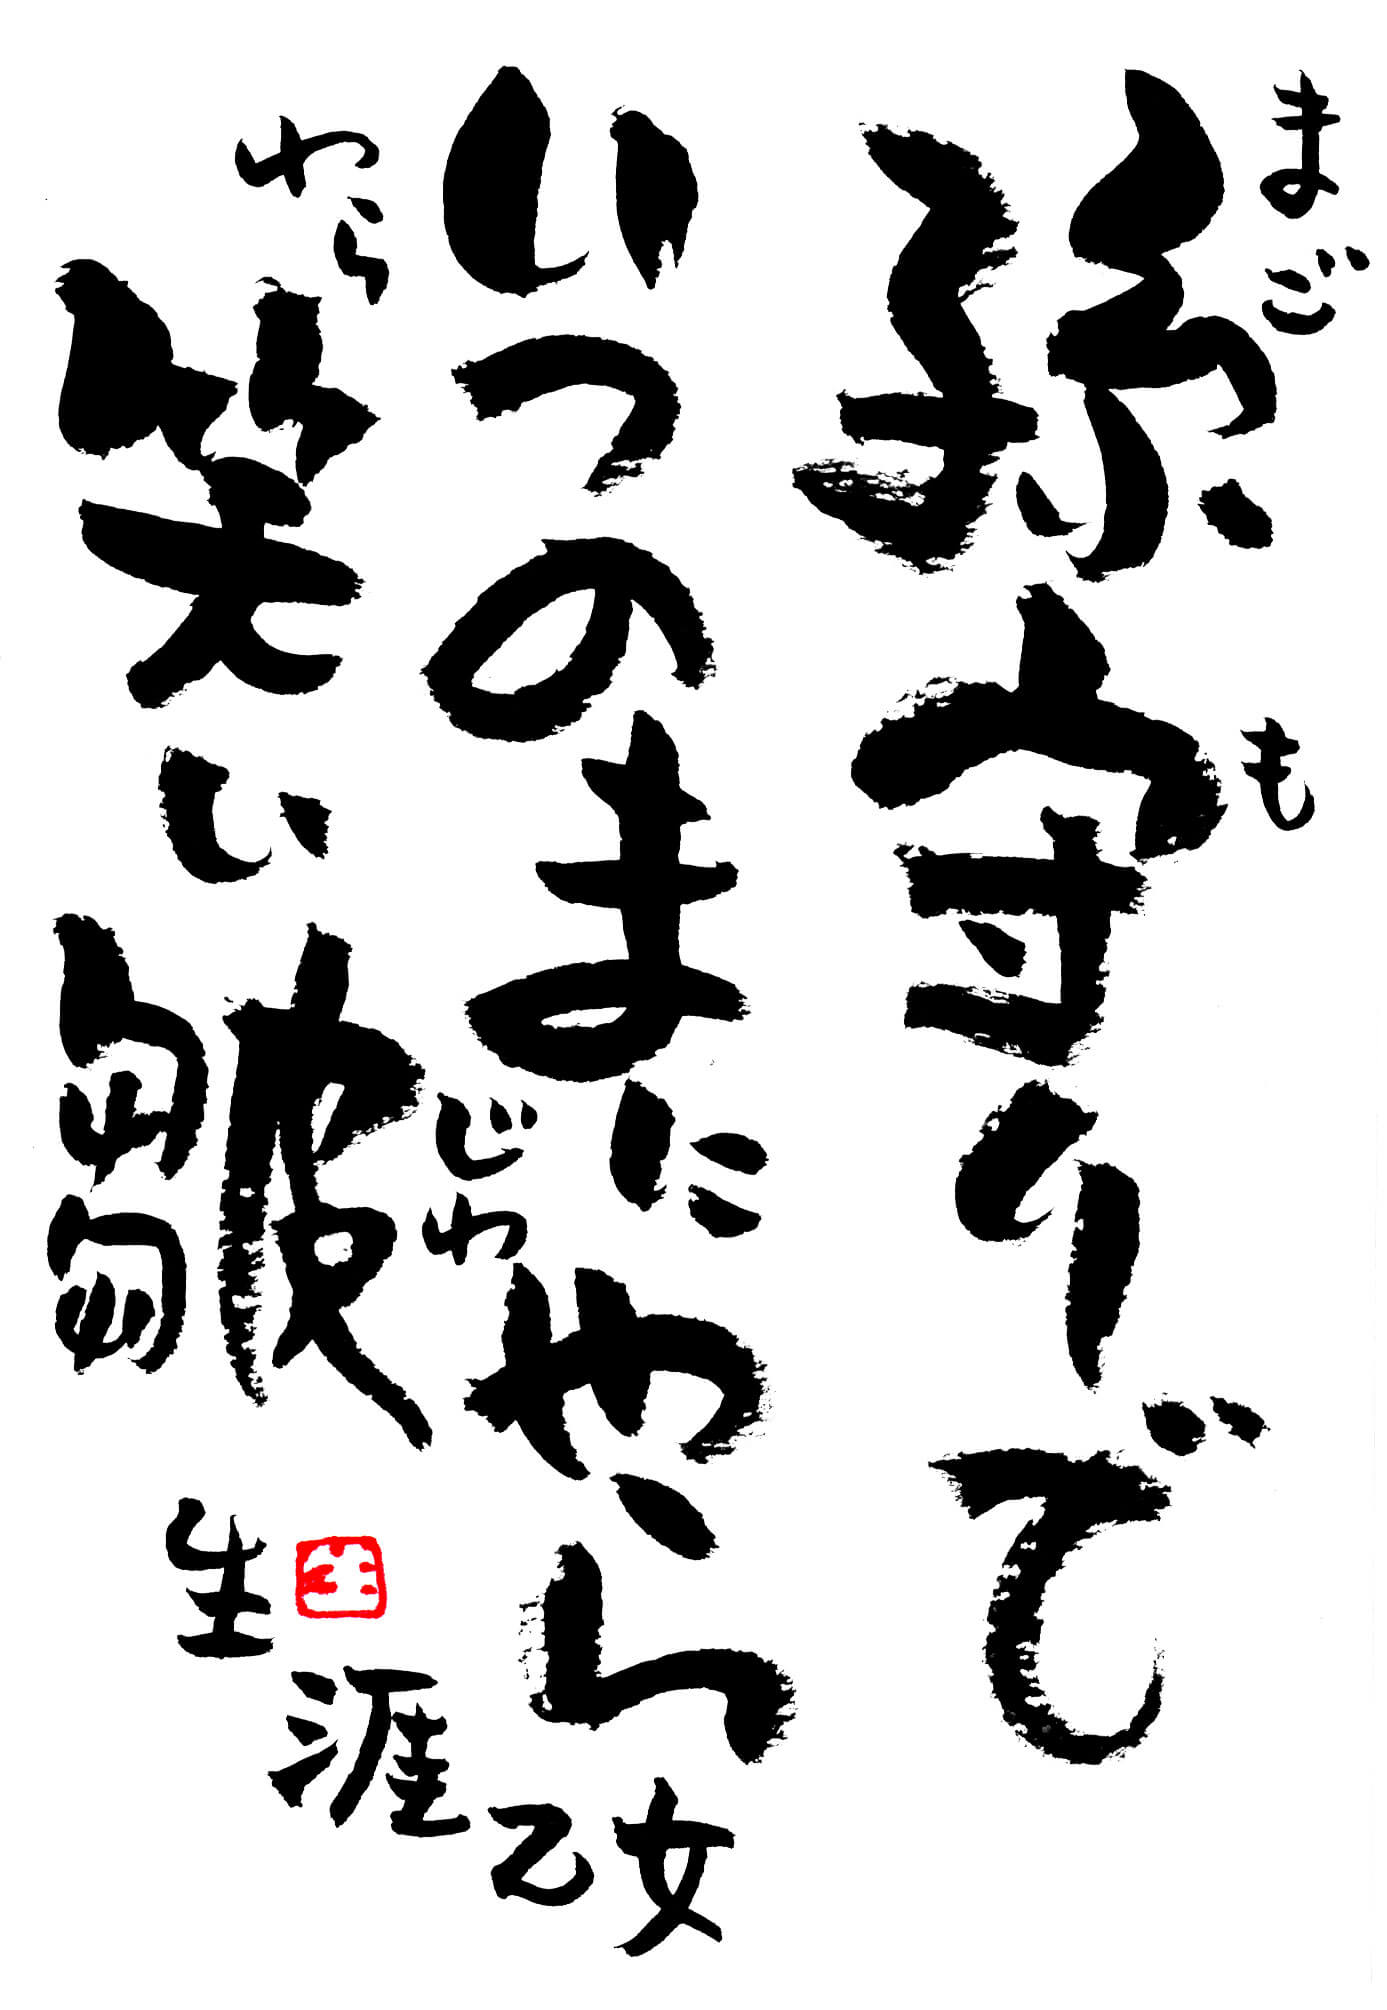 孫守りで
まご
も
いつのまにやら
笑い皺
わら
じわ
生涯乙女
生